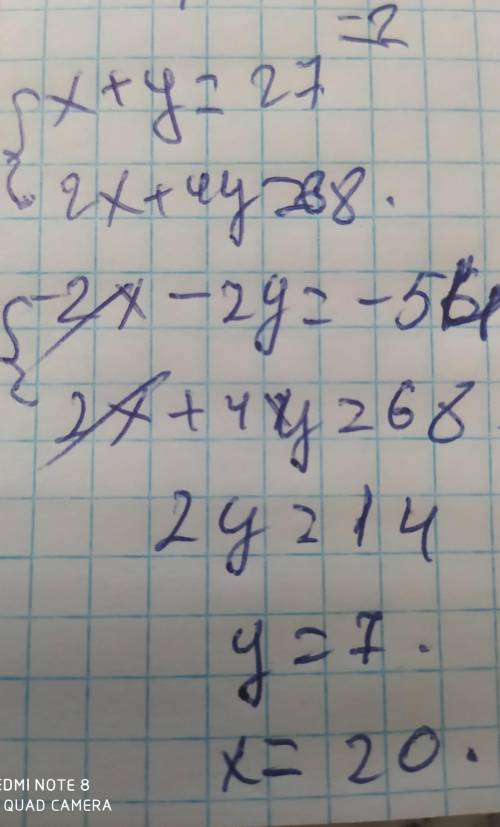 -2
x + y = 27
2x + 4y = 68.
-2x - 2y = -54
2x + 4y = 68.
2y = 14
y = 7.
x = 20.
REDMI NOTE 8
QUAD CAMERA